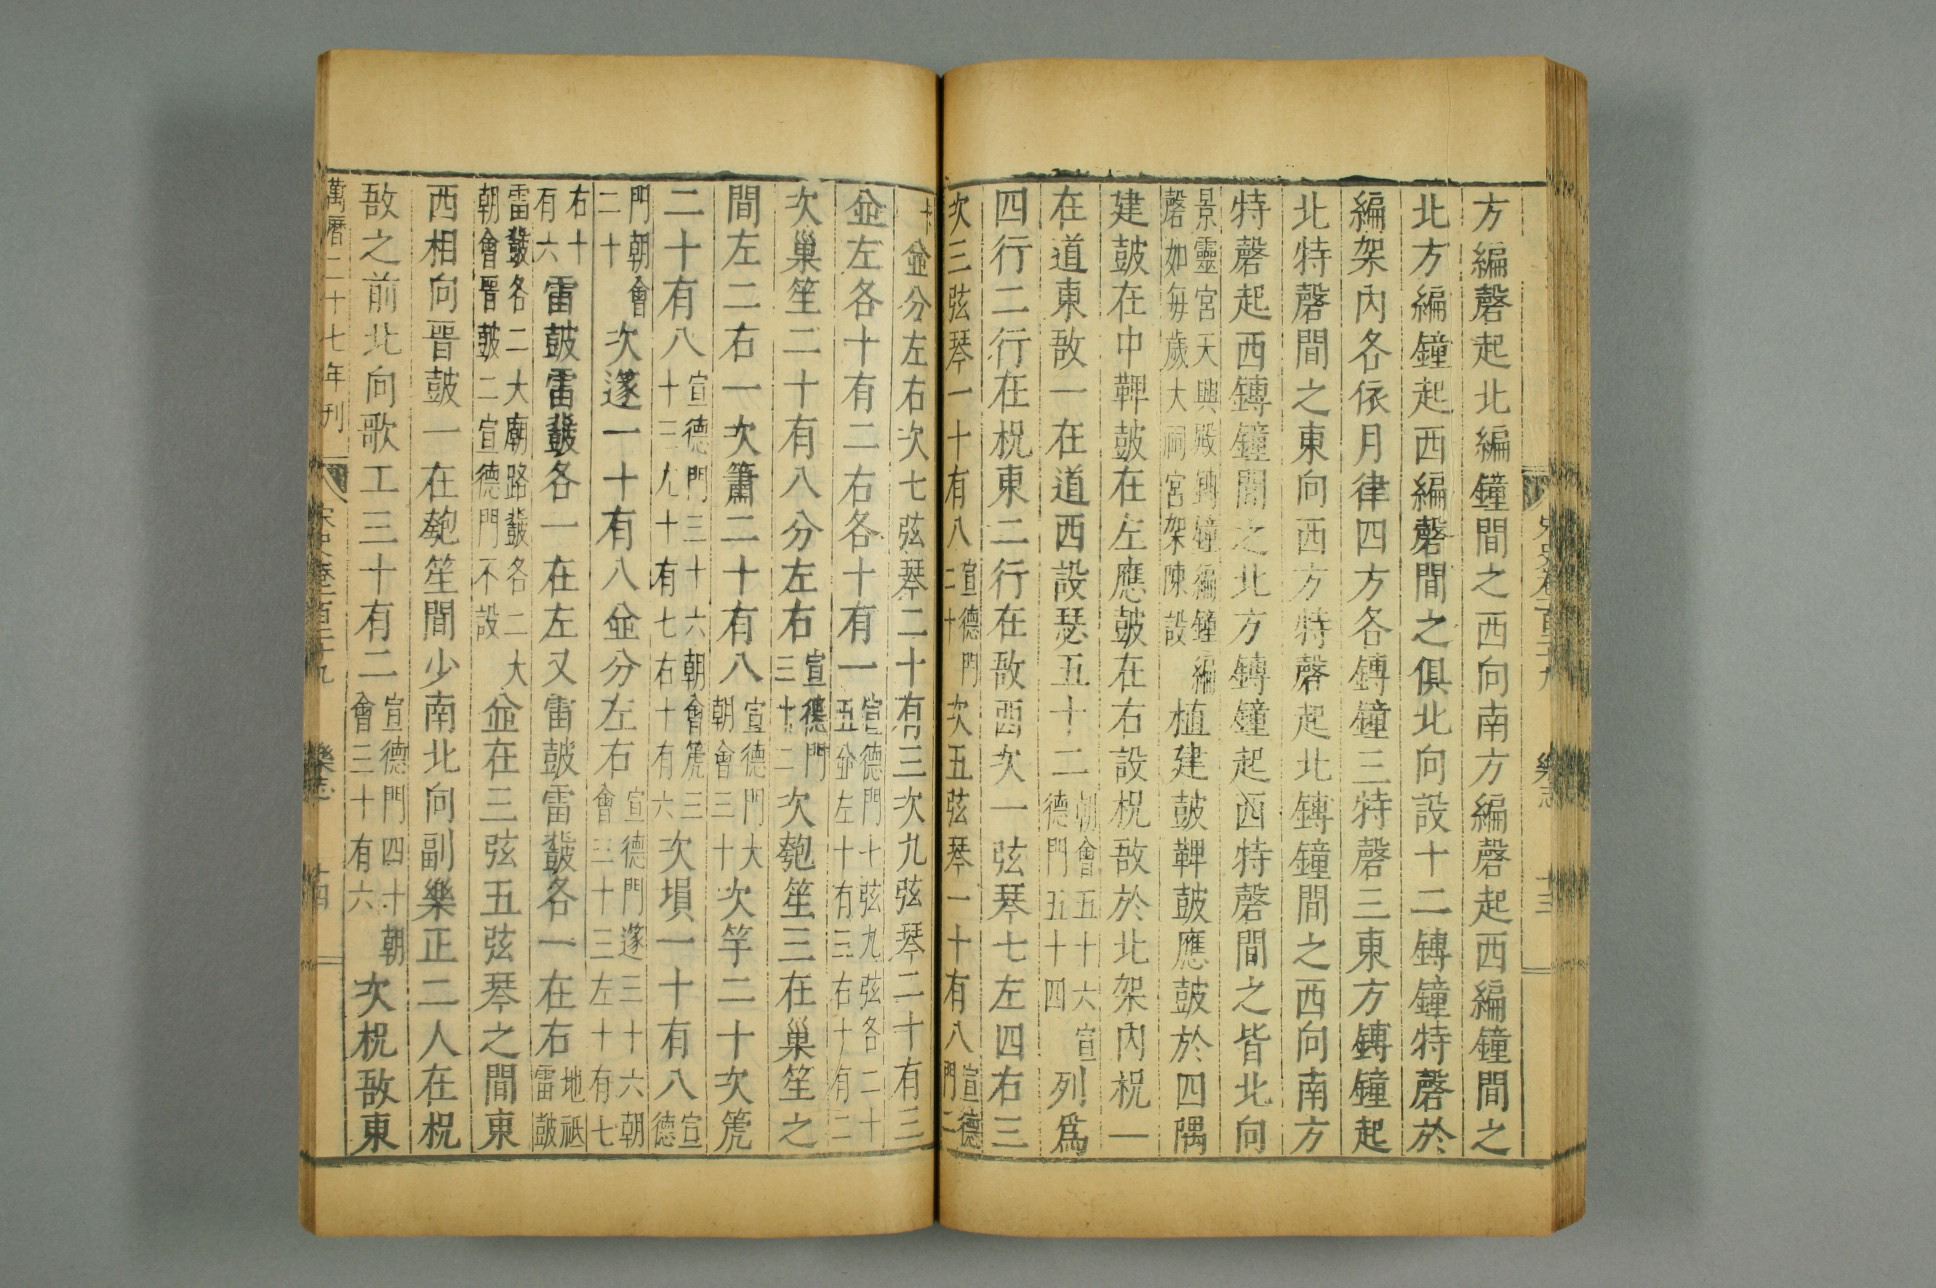 方編磬起北編鐘間之西向南方編磬起西編鐘間之
北方編鐘起西編磬間之俱北向設十二鎛鐘特磬於
編架內各依月律四方各鎛鐘三特磬三東方鎛鐘起
北特磬間之東向西方特磬起北鎛鐘間之西向南方
特磬起西鎛鐘間之北方鎛鐘起西特磬間之皆北向
景靈宮天興殿鎛鐘編鐘編磬如每歲大祠宮架陳設植建鼓鞞鼓應鼓於四隅
建鼓在中鞞鼓在左應鼓在右設柷敔於北架內柷一
在道東敔一在道西設瑟五十二朝會五十六宣德門五十四列爲
四行二行在柷東二行在敔西次一弦琴七左四右三
次三弦琴一十有八宣德門二十次五弦琴一十有八宣德門二
十並分左右次七弦琴二十有三次九弦琴二十有三
並左各十有二右各十有一宣德門七弦九弦各二十五並左十有三右十有二
次巢笙二十有八分左右宣德門三十二次匏笙三在巢笙之
間左二右一次簫二十有八宣德門大朝會三十次竽二十次篪
二十有八宣德門三十六朝會篪三十三九十有七右十有六次塤一十有八宣德
門朝會二十次篴一十有八並分左右宣德門篴三十六朝會三十三左十有七
右十有六雷鼓雷鼗各一在左又雷鼓雷鼗各一在右地祇雷鼓
雷鼗各二大廟路鼗各二大朝會晉鼓二宣德門不設並在三弦五弦琴之間東
西相向晉鼓一在匏笙間少南北向副樂正二人在柷
敔之前北向歌工三十有二宣德門四十朝會三十有六次柷敔東
萬曆二十七年刊
宋史卷一百二十九
樂志
十四